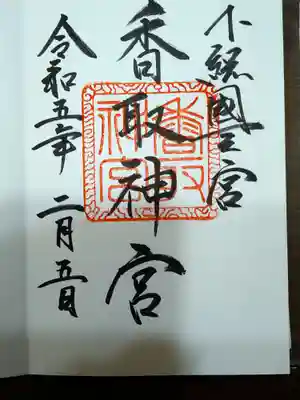 下総國一宮
香取神宮
令和五年 二月五日
香取神宮